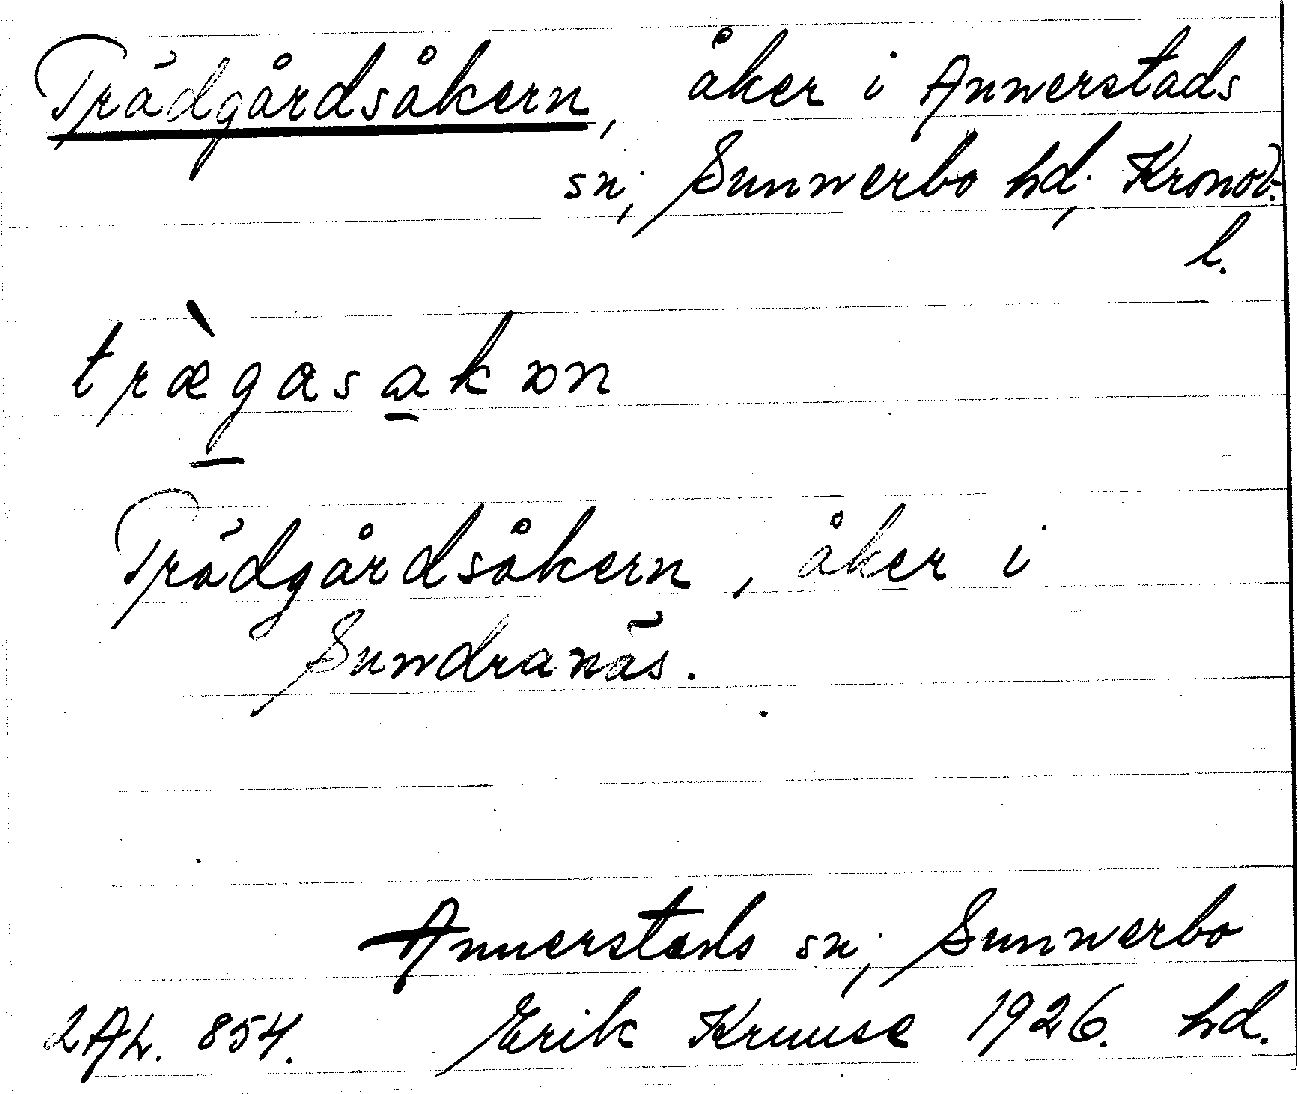 Trädgårdsåkern, åker i Annerstads
sn; Sunnerbo hd; Kronob.
l.
træ̀gasakən
Trädgårdsåkern, åker i
Sundranäs.
Annerstads sn; Sunnerbo
2AL. 854. Erik Kruuse 1926. hd.